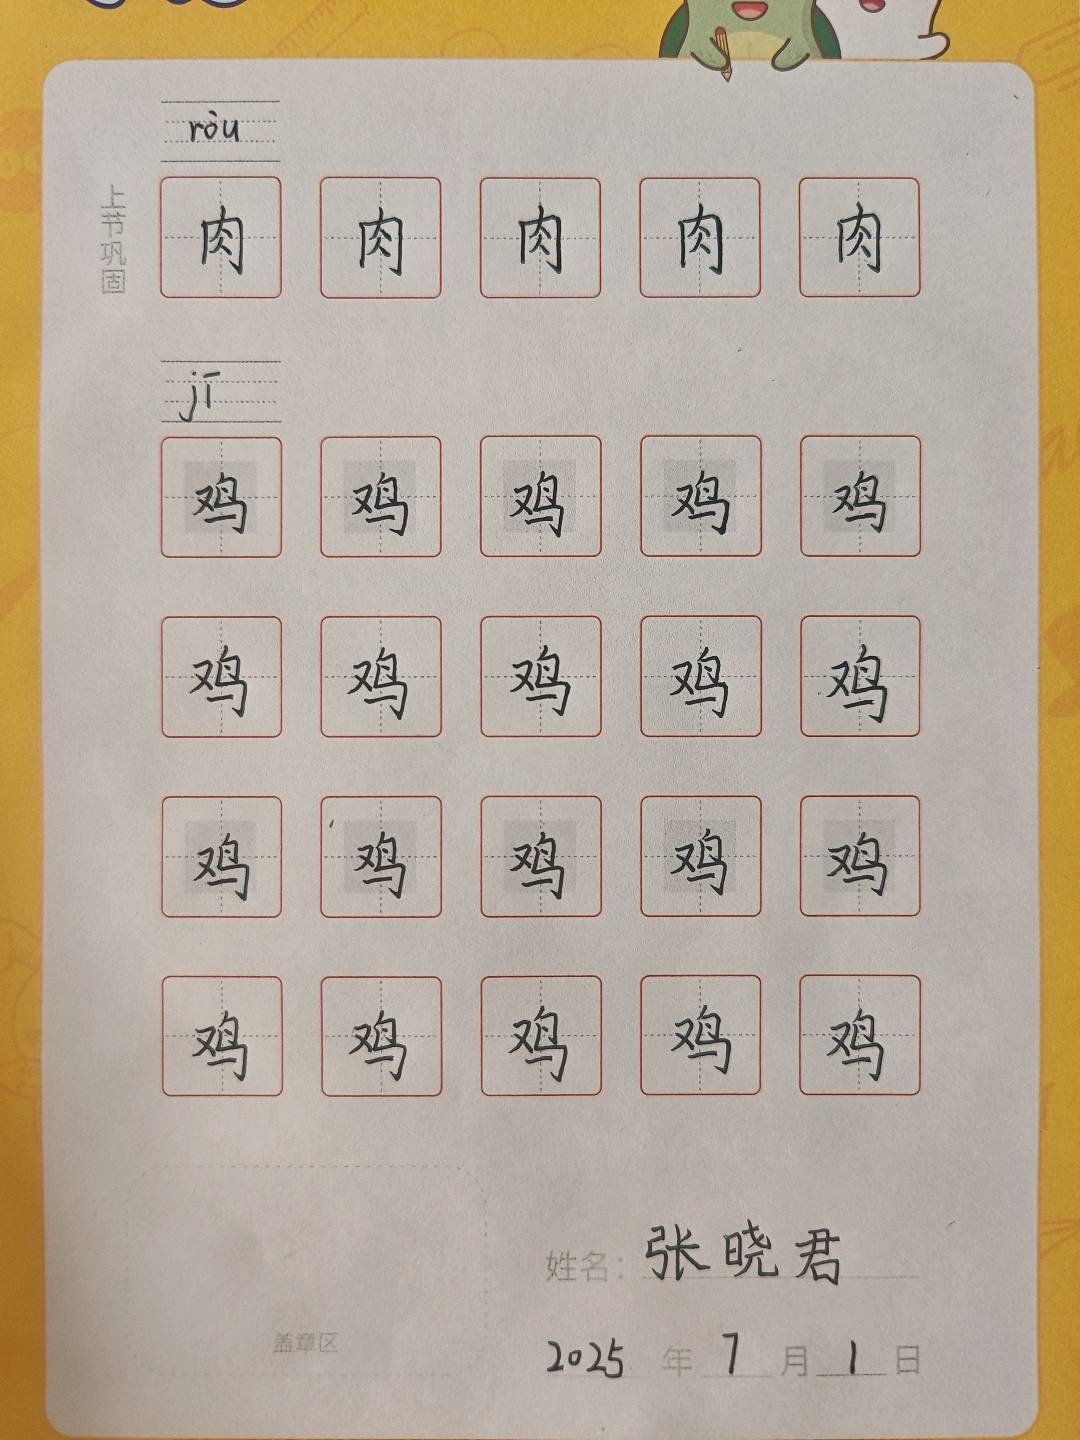 ròu
上节巩固
肉 肉 肉 肉 肉
jī
鸡 鸡 鸡 鸡 鸡
鸡 鸡 鸡 鸡 鸡
鸡 鸡 鸡 鸡 鸡
鸡 鸡 鸡 鸡 鸡
姓名：张晓君
盖章区
2025年7月1日